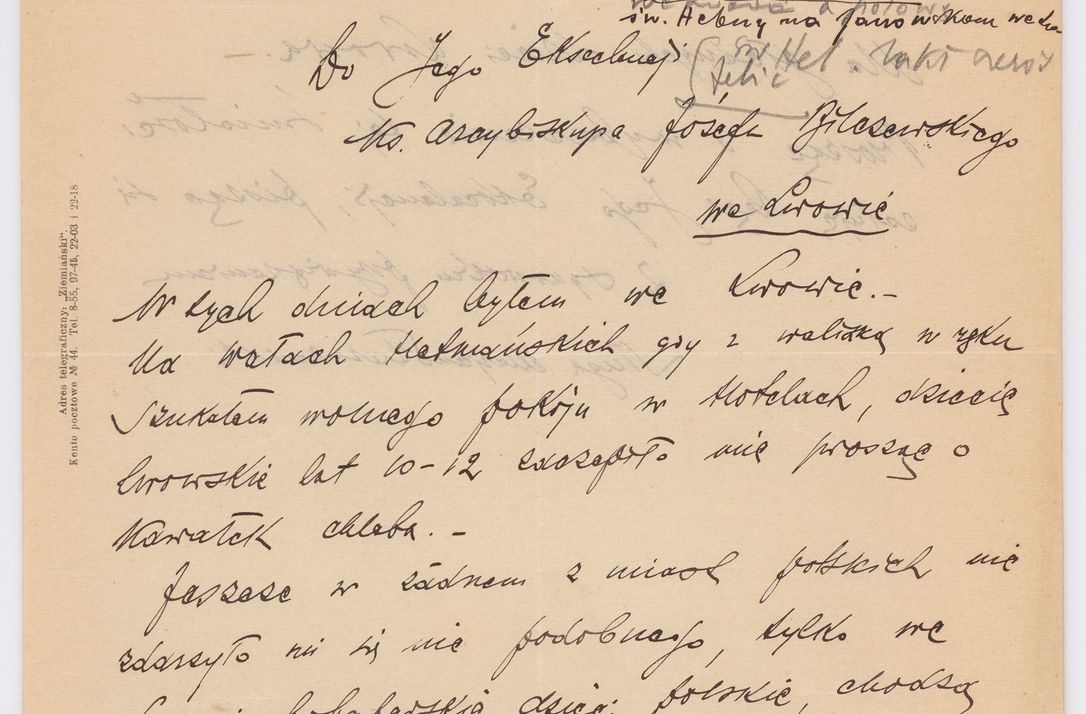 św. Heleny na Janowskiem
św Hel.
Do Jego Ekscelencji
Ks. Arcybiskupa Józefa Bilczewskiego
we Lwowie
Adres telegraficzny: „Ziemiański“.
Konto pocztowe № 44. Tel. 8-55, 97-45, 22-03 i 22-18
W tych dniach byłem we Lwowie.—
Na wałach Hetmańskich gdy z walizką w ręku
szukałem wolnego pokoju w Hotelach, dziecię
lwowskie lat 10-12 zaczepiło mię prosząc o
kawałek chleba.—
Jeszcze w żadnem z miast polskich nie
zdarzyło mi się nic podobnego, tylko we
dzieci polskie, chodzą